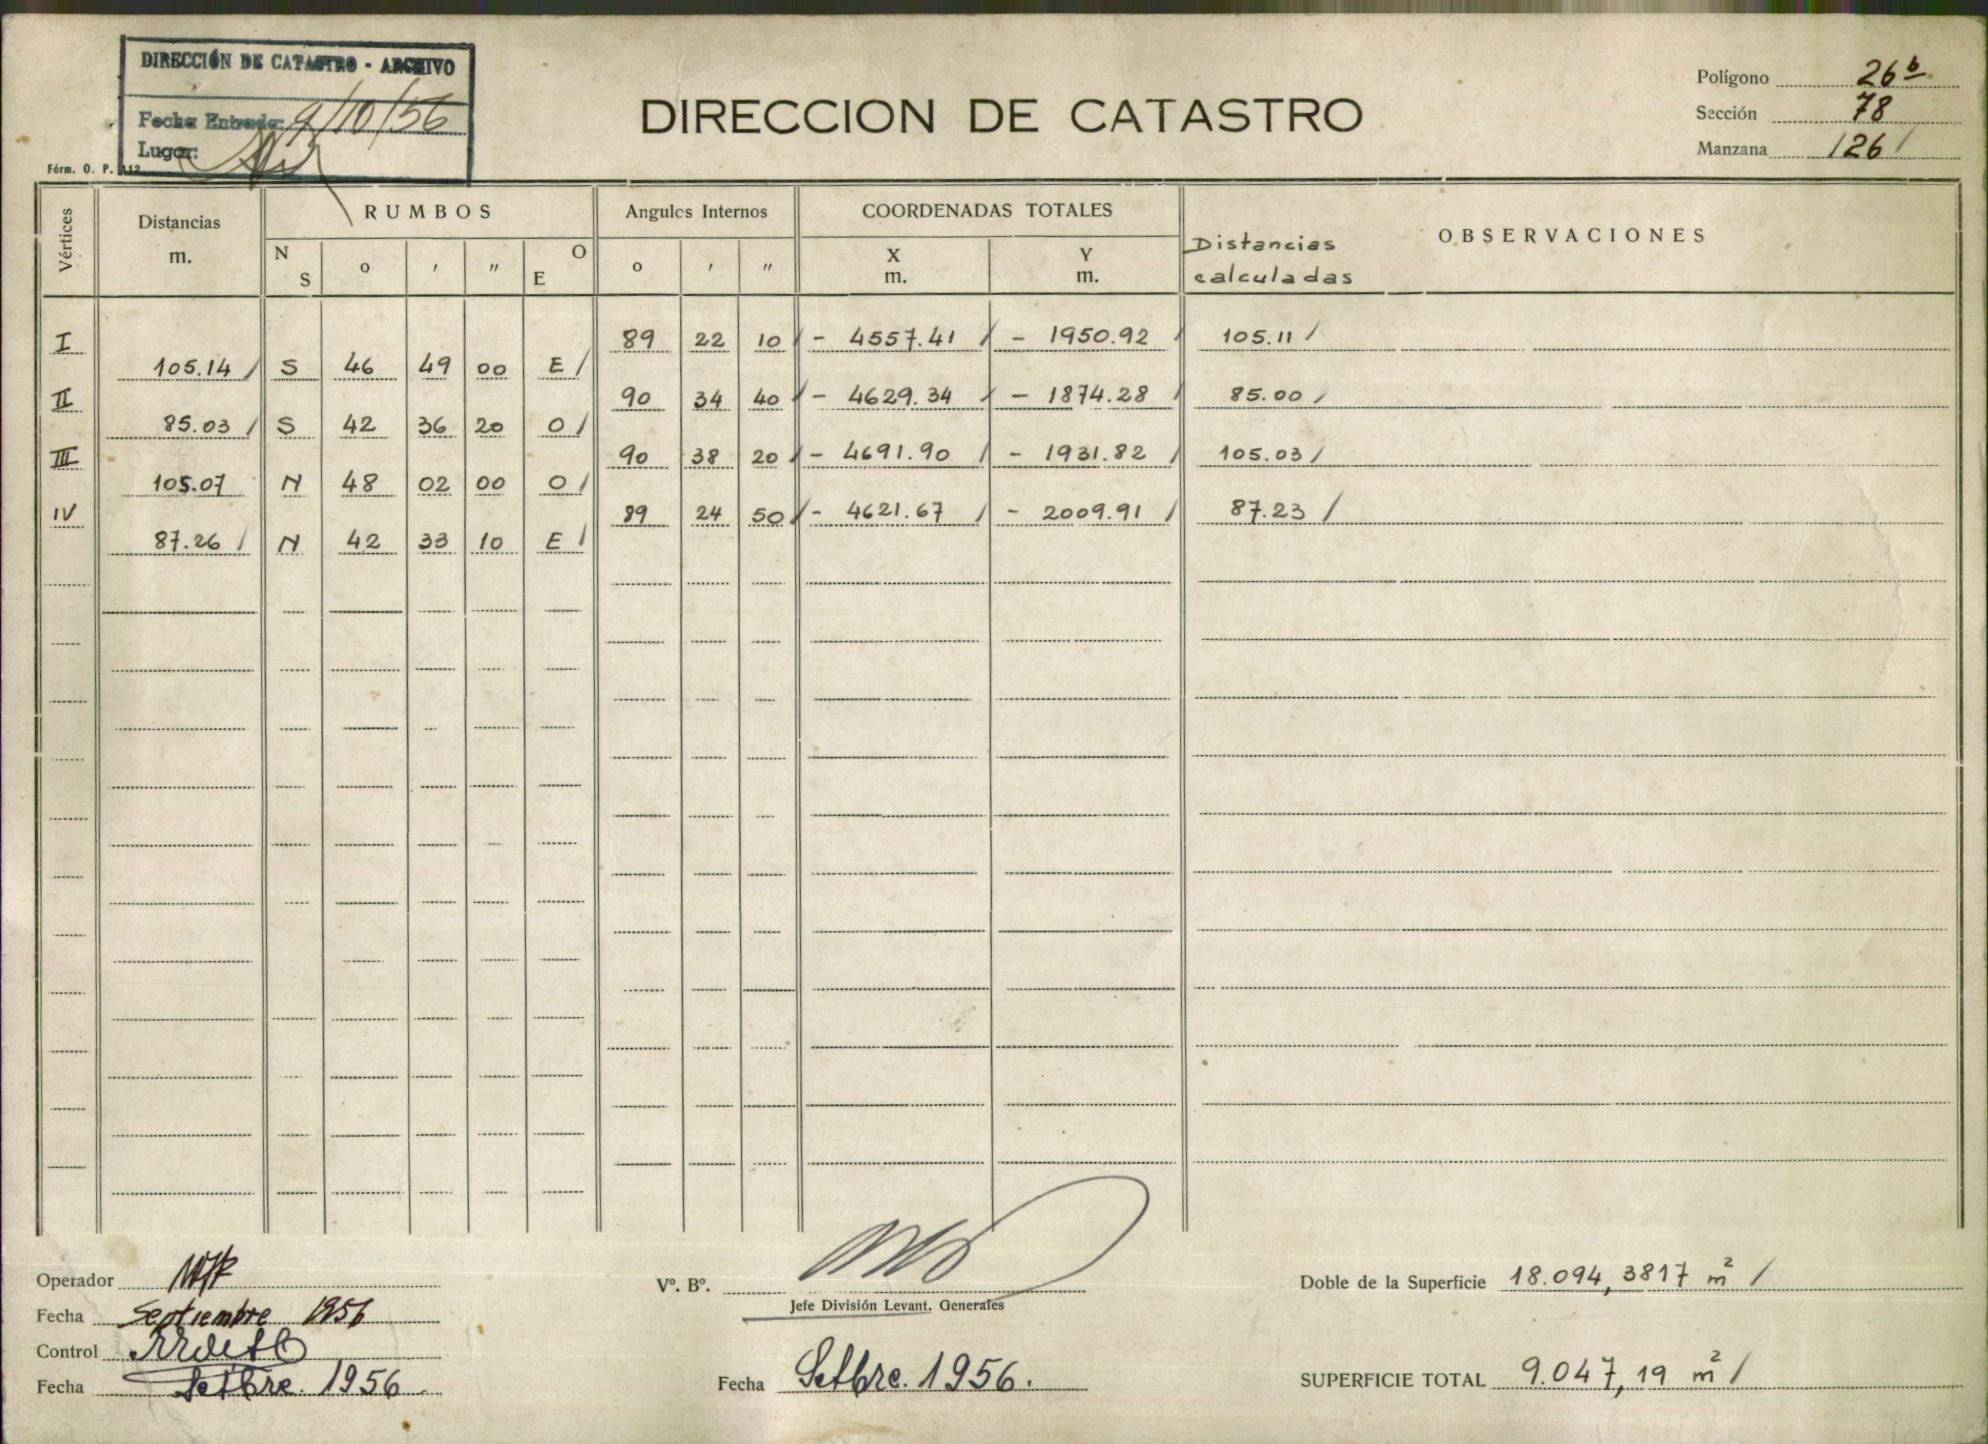 DIRECCIÓN DE CATASTRO - ARCHIVO
Fecha Entrada: 9/10/56
Lugar:
Fórm. O. P. 112
DIRECCION DE CATASTRO
Polígono 26 b
Sección 78
Manzana 126 /
Vértices Distancias m. RUMBOS Angulos Internos COORDENADAS TOTALES Distancias calculadas OBSERVACIONES
N S o ' " O E o ' " X m. Y m.
I 89 22 10 / - 4557.41 / - 1950.92 / 105.11 /
105.14 / S 46 49 00 E /
II 90 34 40 / - 4629.34 / - 1874.28 / 85.00 /
85.03 / S 42 36 20 O /
III 90 38 20 / - 4691.90 / - 1931.82 / 105.03 /
105.07 N 48 02 00 O /
IV 89 24 50 / - 4621.67 / - 2009.91 / 87.23 /
87.26 / N 42 33 10 E /
Operador
Fecha Septiembre 1956
Control
Fecha Setbre. 1956
Vº. Bº.
Jefe División Levant. Generales
Fecha Setbre. 1956.
Doble de la Superficie 18.094,3817 m² /
SUPERFICIE TOTAL 9.047,19 m² /